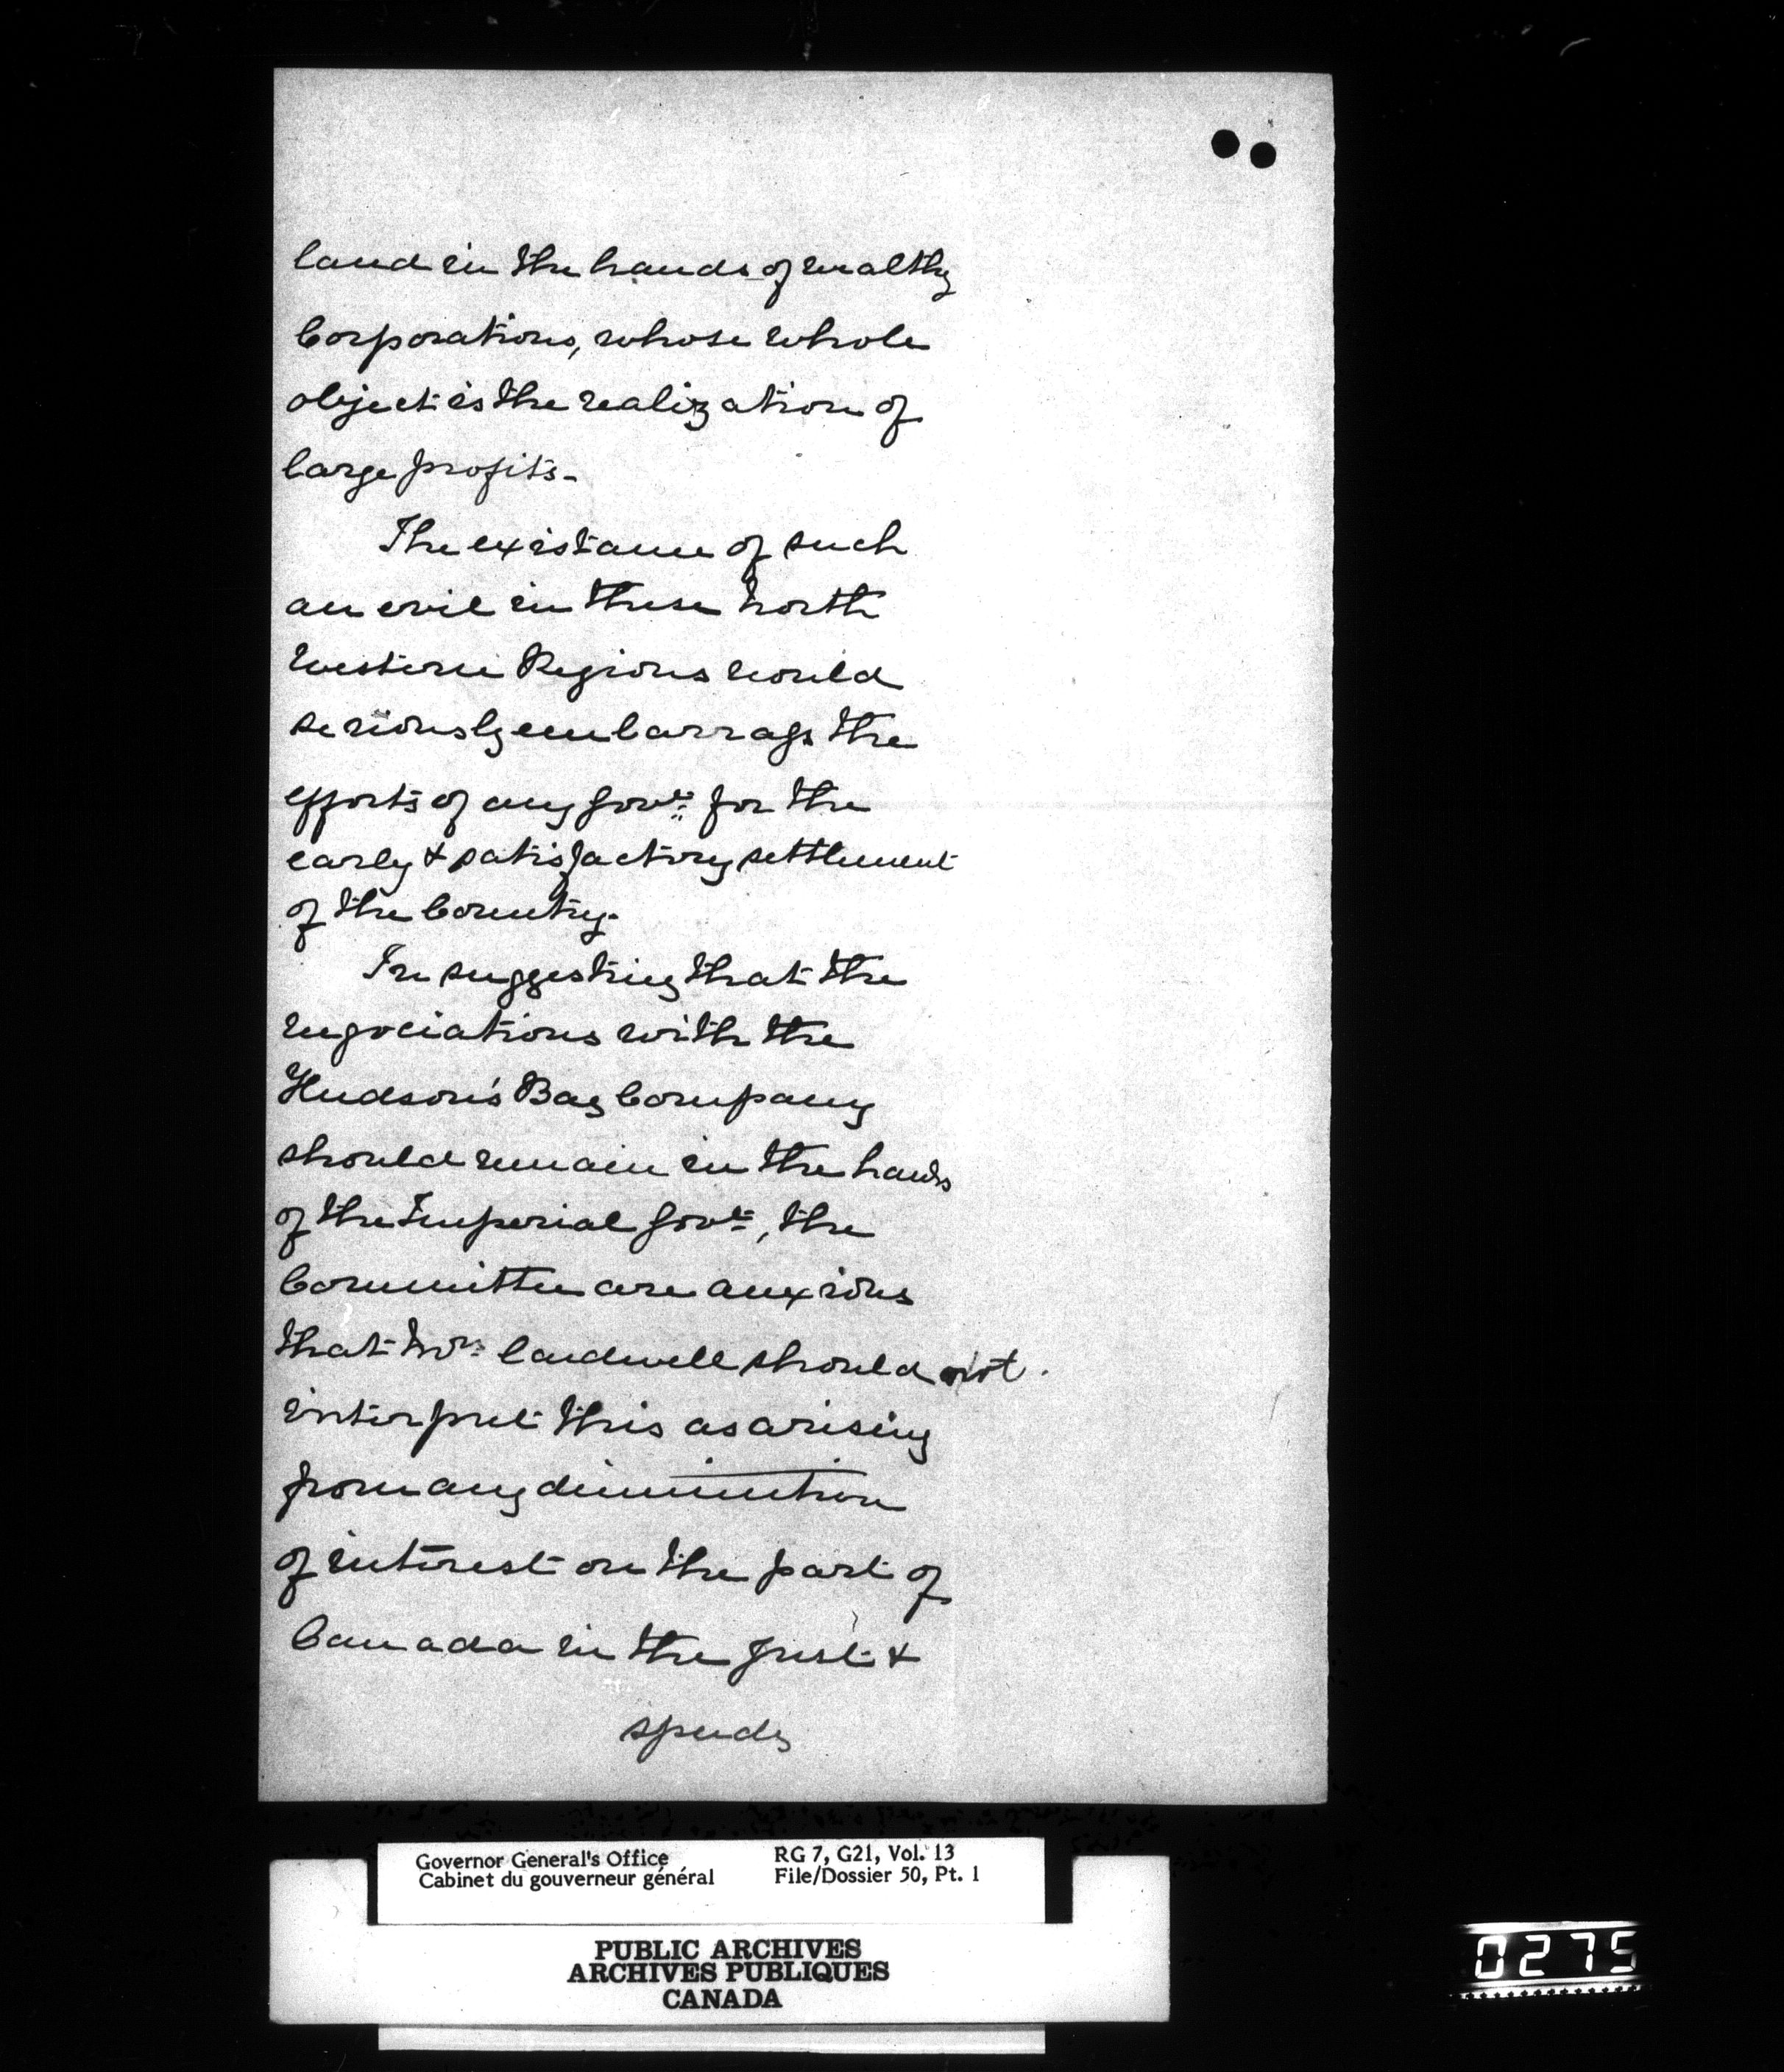 land in the hands of wealthy
Corporations, whose whole
object is the realization of
large profits -
The existance of such
an evil in these North
Western Regions would
seriously embarrass the
efforts of any Govt. for the
early & satisfactory settlement
of the Country.
In suggesting that the
negociations with the
Hudson's Bay Company
should remain in the hands
of the Imperial Govt., the
Committee are anxious
that Mr. Cardwell should not
interpret this as arising
from any diminution
of interest on the part of
Canada in the just &
speedy
Governor General's Office
Cabinet du gouverneur général
RG 7, G21, Vol. 13
File/Dossier 50, Pt. 1
PUBLIC ARCHIVES
ARCHIVES PUBLIQUES
CANADA
0275